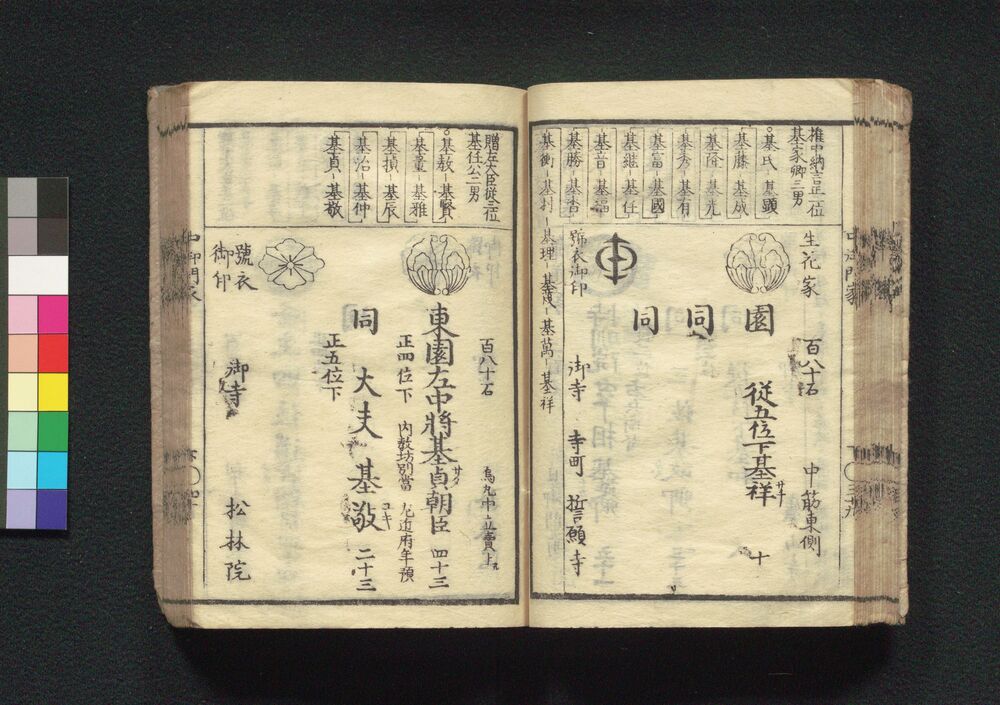 権中納言正二位
基家卿三男
基氏-基顕
基藤-基成
基隆-基光
基秀-基有
基富-基國
基継-基任
基音-基福
基勝-基香
基衡-基村
基理-基茂-基萬-基祥
生花家
百八十石
中筋東側
園
従五位下基祥
サチ
十
同
同
號衣御印
御寺 寺町 誓願寺
贈左大臣従三位
基任公二男
基教-基賢
基量-基雅
基楨 基辰
基治-基仲
基貞-基敬
百八十石
烏丸中立賣上ル
東園左中将基貞朝臣 四十三
サダ
正四位下 内教坊別當 左近府年預
同 大夫 基敬 二十三
ユキ
正五位下
號衣
御印
御寺 松林院
中御門家